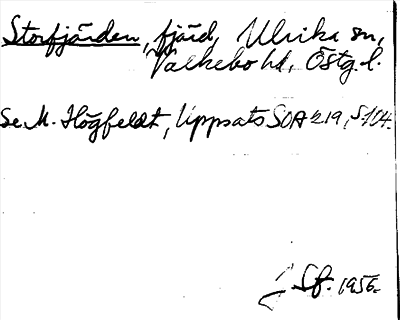 Storfjärden, fjärd, Ulrika sn,
Valkebo hd, Östg. l.
Se M. Högfeldt, Uppsats SOA 219, s 104.
Sf. 1956.